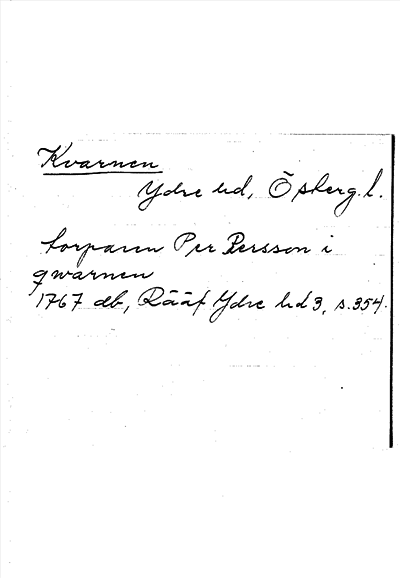 Kvarnen
Ydre hd, Ö sberg. l.
torparen Per Persson i
qwarnen
1767 db, Rääf Ydre hd 3, s. 354.